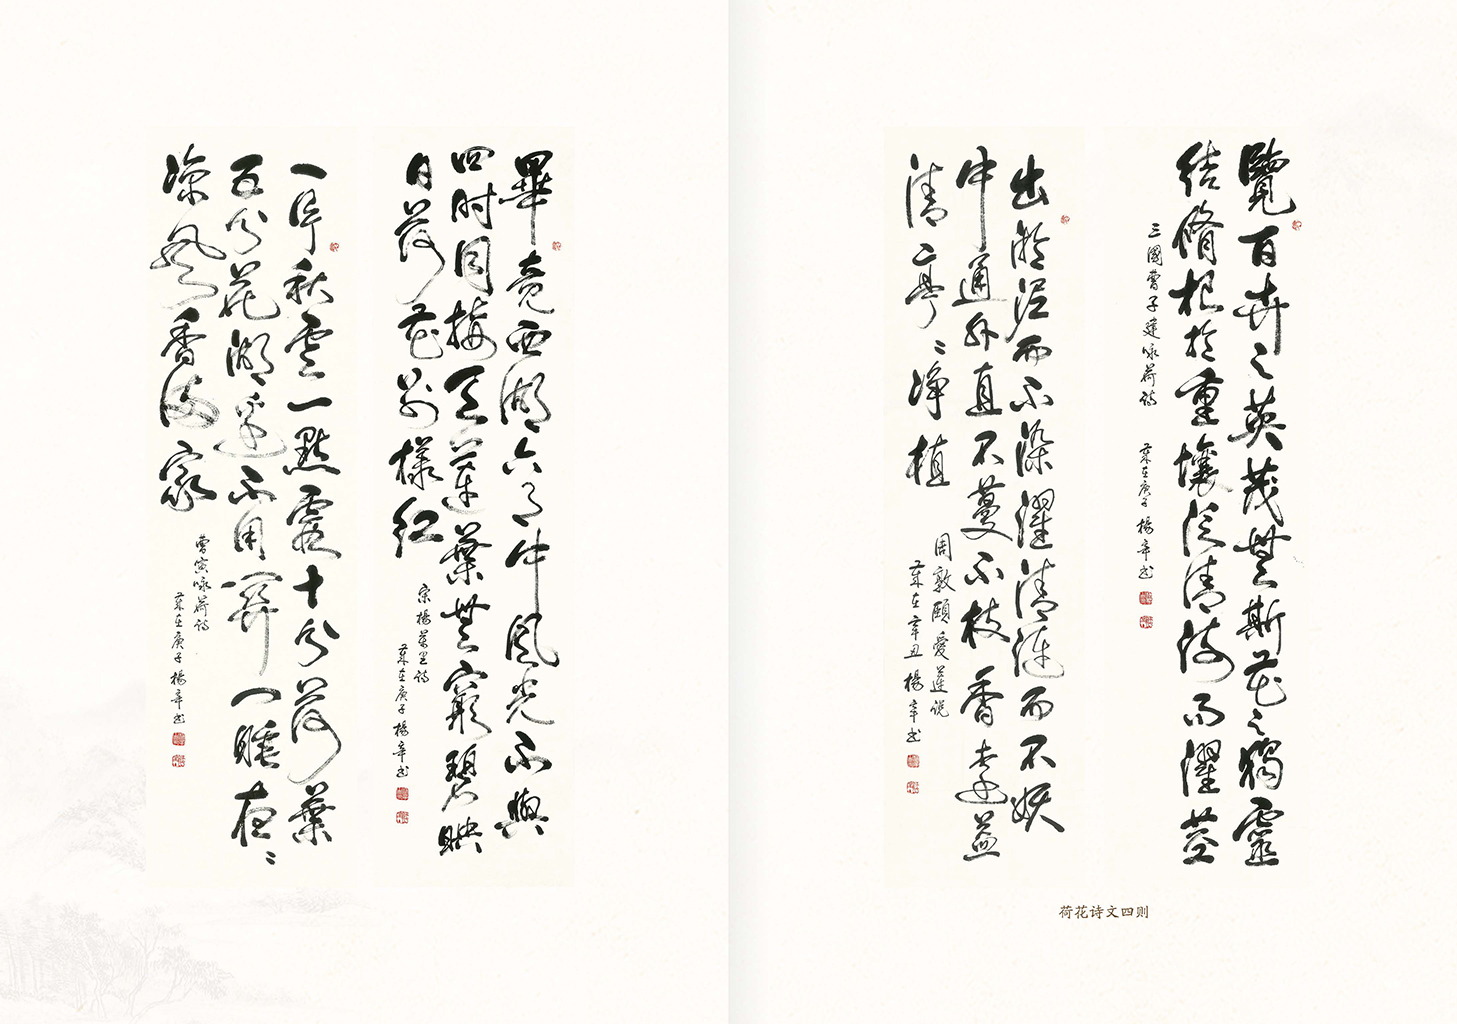 覽百卉之英茂無斯花之獨靈
結脩根於重壤泛清流而濯莖
三國曹子建咏荷詩 歲在庚子楊辛书
出淤泥而不染濯清漣而不妖
中通外直不蔓不枝香遠益
清亭々淨植
周敦頤愛蓮説
歲在辛丑楊辛书
畢竟西湖六月中風光不與
四时同接天蓮葉無窮碧映
日荷花別樣紅
宋楊萬里詩
歲在庚子楊辛书
一片秋雲一點霞十分荷葉
五分花湖邊不用關門睡夜々
涼風香滿家
曹寅咏荷詩
歲在庚子楊辛书
荷花诗文四则